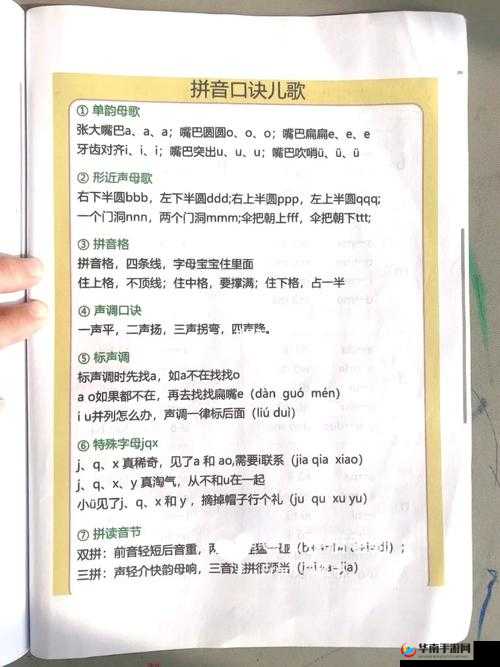 拼音口诀儿歌
① 单韵母歌
张大嘴巴a、a、a；嘴巴圆圆o、o、o；嘴巴扁扁e、e、e
牙齿对齐i、i、i；嘴巴突出u、u、u；嘴巴吹哨ü、ü、ü
② 形近声母歌
右下半圆bbb，左下半圆ddd;右上半圆ppp，左上半圆qqq;
一个门洞nnn，两个门洞mmm;伞把朝上fff，伞把朝下ttt;
③ 拼音格
拼音格，四条线，字母宝宝住里面
住上格，不顶线；住中格，要撑满；住下格，占一半
④ 声调口诀
一声平，二声扬，三声拐弯，四声降。
⑤ 标声调
标声调时先找a，如a不在找找o
a o如果都不在，再去找找扁嘴e（dàn guó mén）
i u并列怎么办，声调一律标后面（liú duì）
⑥ 特殊字母jqx
j、q、x 真稀奇，见了a 和 ao,需要i联系（jia qia xiao）
j、q、x、y 真淘气，从不和u在一起
小ü见了j、q、x 和 y ，摘掉帽子行个礼（ju qu xu yu）
⑦ 拼读音节
双拼：前音轻短后音重，两 一碰
三拼：声轻介快韵母响，三音 拼很顺当
华南手游网